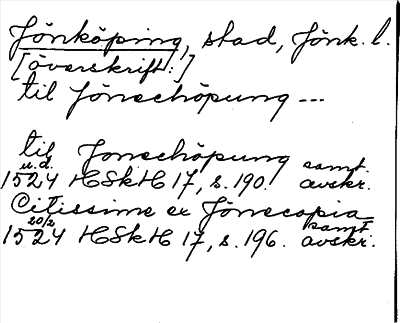 Jönköping, stad, Jönk. l.
[överskrift:]
til Jönechöpung ---
til Jonechöpung
u.d. samt.
1524 HSkH 17, s. 190. avskr.
Citissime ex Jönecopia
20/2 samt.
1524 HSkH 17, s. 196. avskr.